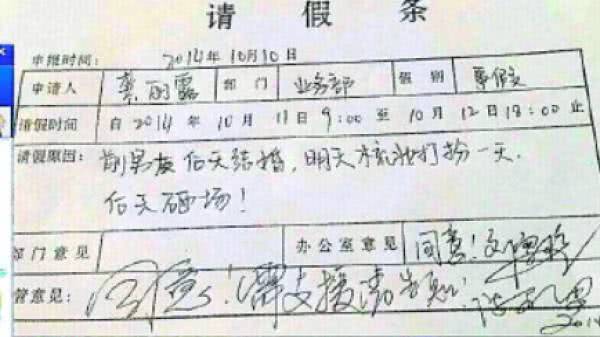 请 假 条
申报时间： 2014年10月10日
申请人 丽露 部 门 业务部 假 别 事假
请假时间 自 2014 年 10 月 11 日 9:00 至 10 月 12 日 18:00 止
请假原因： 前男友后天结婚，明天梳妆打扮一天.
后天砸场！
部门意见 办公室意见 同意！
管意见： 同意！需支援请告知.
2014